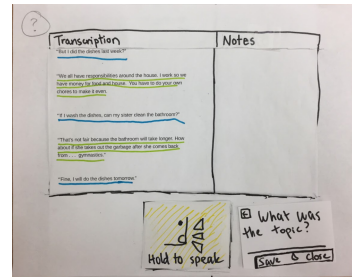 ?
Transcription
Notes
"But I did the dishes last week?"
"We all have responsibilities around the house. I work so we
have money for food and house. You have to do your own
chores to make it even.
"If I wash the dishes, can my sister clean the bathroom?"
"That's not fair because the bathroom will take longer. How
about if she takes out the garbage after she comes back
from . . . gymnastics."
"Fine, I will do the dishes tomorrow."
Hold to speak
What was
the topic?
Save & Close